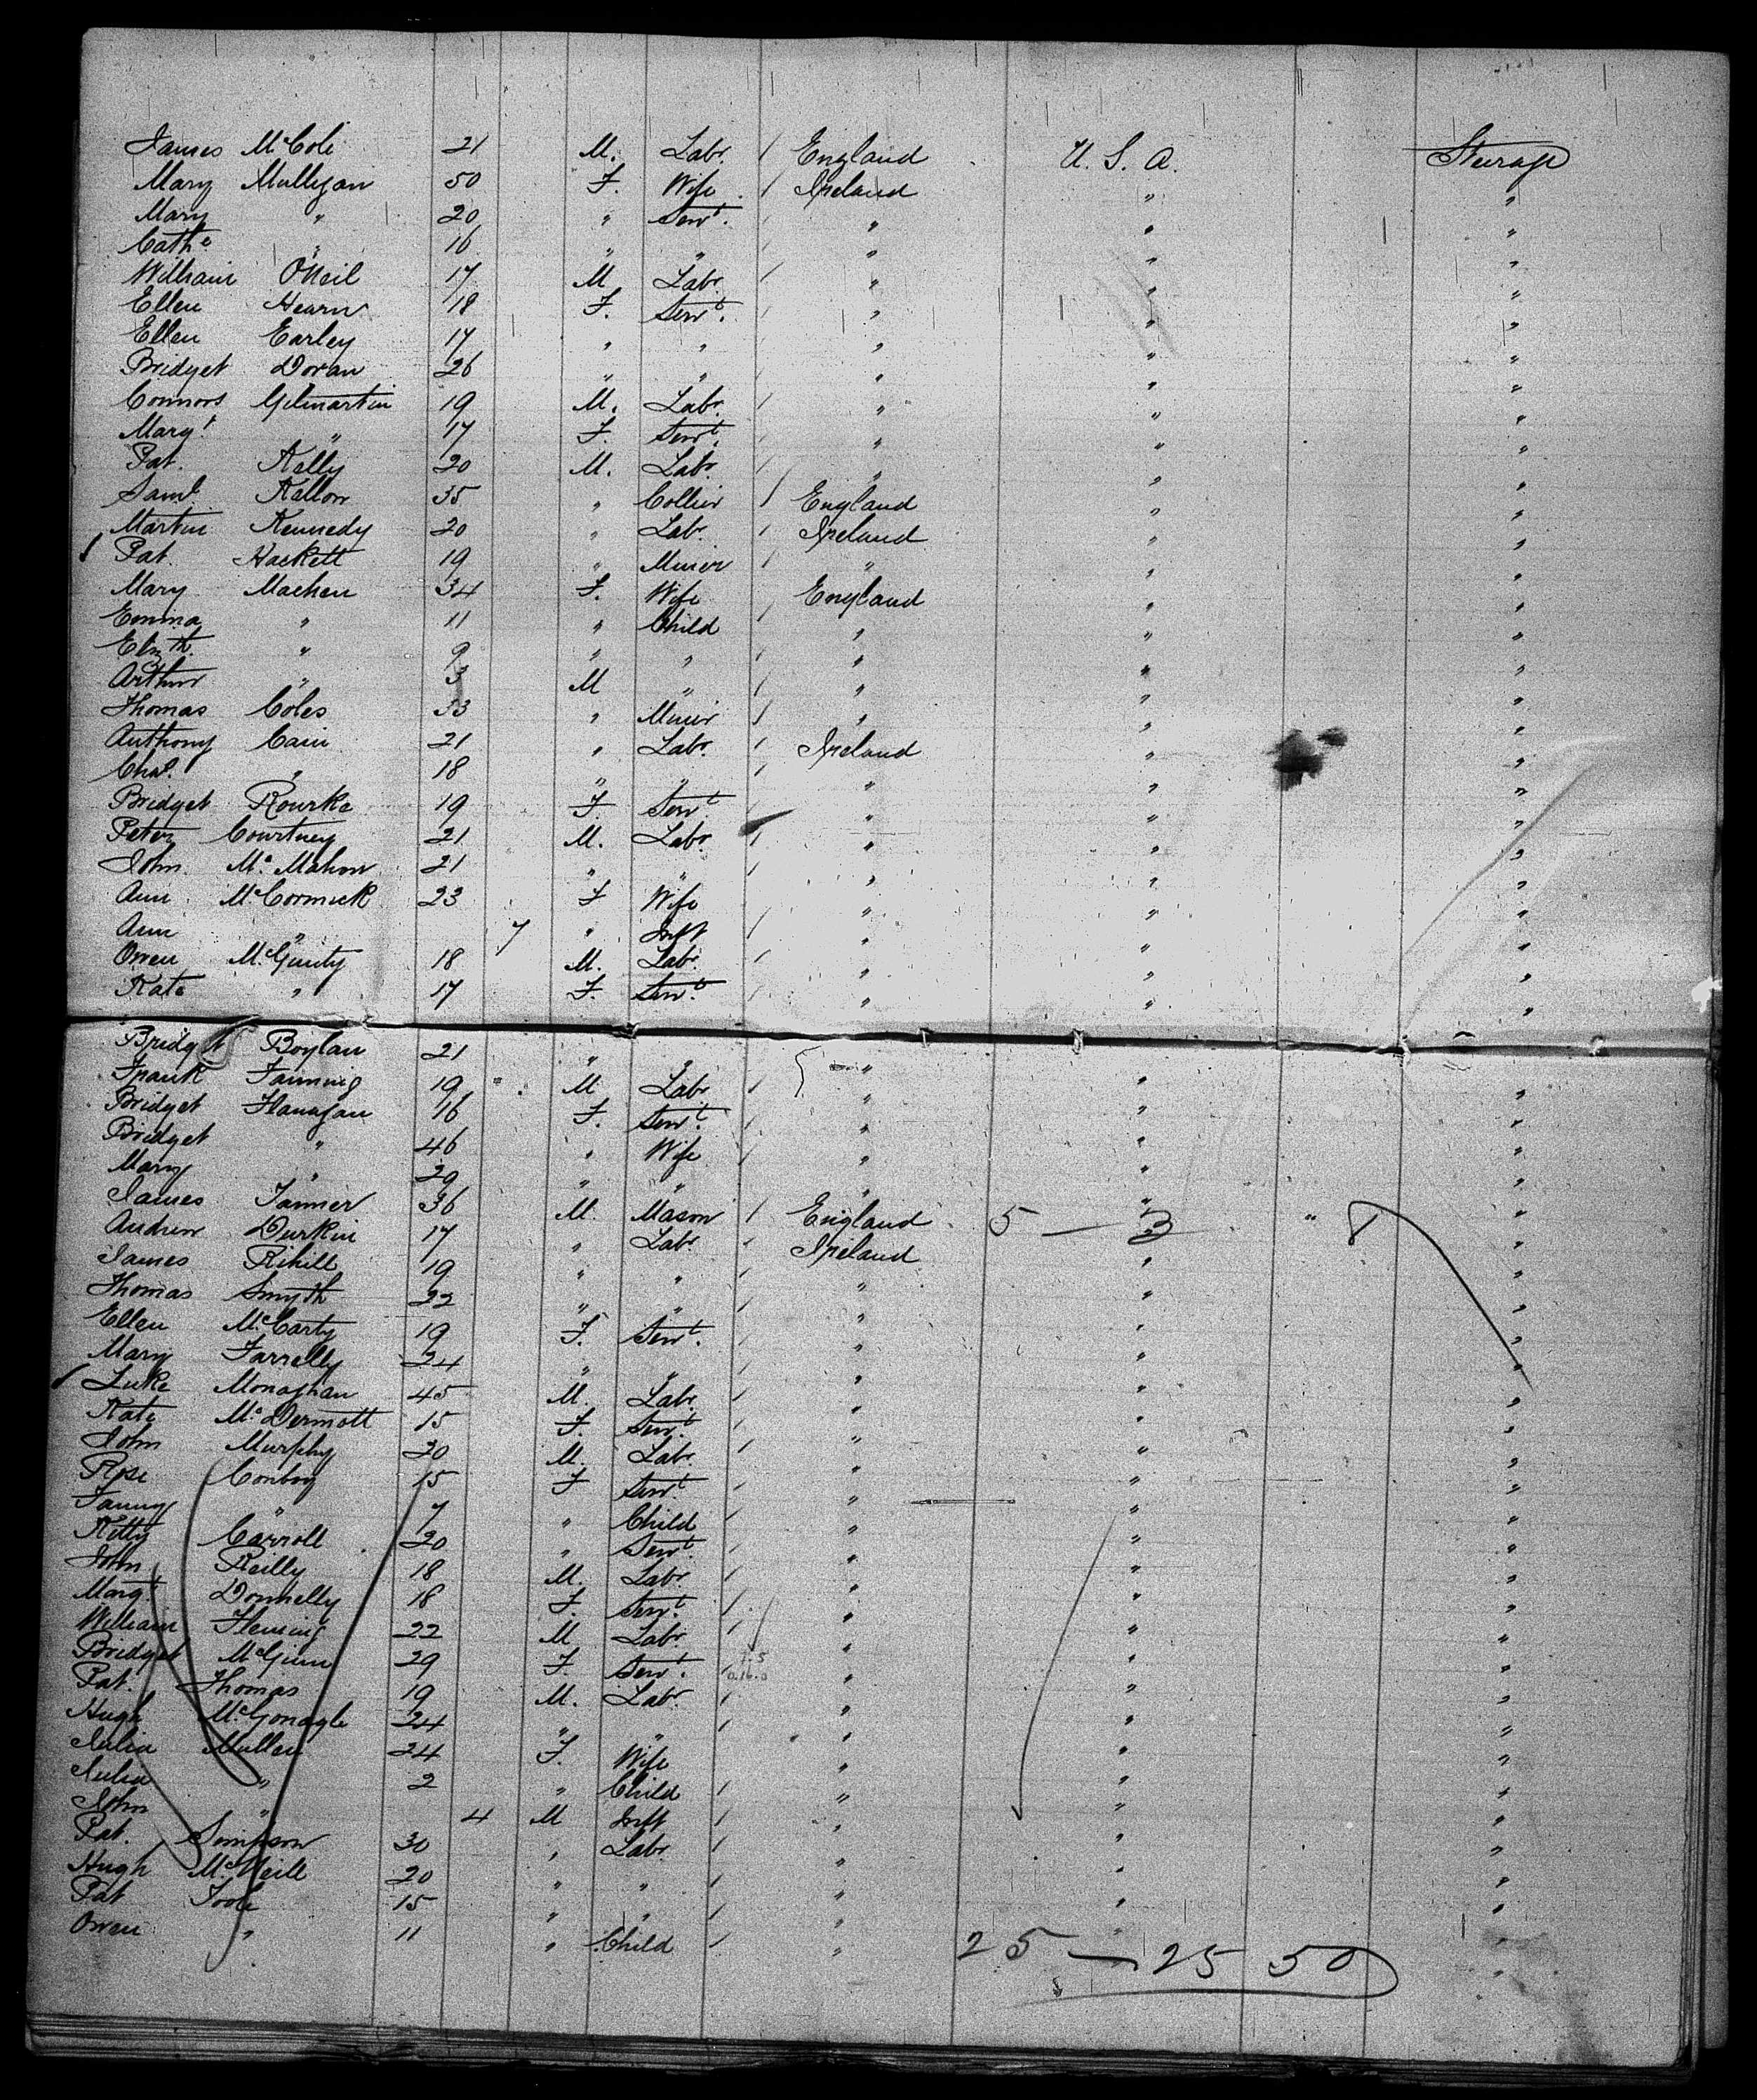 James McCole 21 M. Labr. / England U. S. A. Steerage
Mary Mulligan 50 F. Wife / Ireland " "
Mary " 20 " Servt. / " " "
Cathe " 16 " " / " " "
William O'Neil 17 M Labr. / " " "
Ellen Hearn 18 F. Servt. / " " "
Ellen Earley 17 " " / " " "
Bridget Doran 26 " " / " " "
Connors Gilmartin 19 M. Labr. / " " "
Margt. " 17 F. Servt. / " " "
Pat. Kelly 20 M. Labr. / " " "
Saml. Kellow 35 " Collier / England " "
Martin Kennedy 20 " Labr. / Ireland " "
Pat. Hackett 19 " Miner / " " "
Mary Machen 34 F. Wife England " "
Emma " 11 " Child / " " "
Elizth. " 9 " " / " " "
Arthur " 3 M " / " " "
Thomas Coles 33 " Miner / " " "
Anthony Cain 21 " Labr. / Ireland " "
Chas. " 18 " " / " " "
Bridget Rourke 19 F. Servt / " " "
Peter Courtney 21 M. Labr. / " " "
John McMahon 21 " " / " " "
Ann McCormick 23 F Wife " " "
Ann " 7 " Inft / " " "
Owen McGinty 18 M. Labr. / " " "
Kate " 17 F. Servt. / " " "
Bridget Boylan 21 " " "
Frank Fanning 19 M Labr. / " " "
Bridget Flanagan 16 F. Servt. / " " "
Bridget " 46 " Wife / " " "
Mary " 29 " " " " "
James 36 M. Mason / England 5 — 3 " 8 "
Andrew Durkin 17 " Labr. / Ireland "
James Rihill 19 " " / " " "
Thomas Smyth 22 " " / " " "
Ellen McCarty 19 F. Servt. / " " "
Mary Farrelly 24 " " / " " "
Luke Monaghan 45 M. Labr. / " " "
Kate McDermott 15 F. Servt. / " " "
John Murphy 30 M. Labr. / " " "
Rose Conboy 15 F Servt / " " "
Fanny " 7 " Child / " " "
Kitty Carroll 20 " Servt. / " " "
John Reilly 18 M. Labr. / " " "
Margt. Donnelly 18 F. Servt. / " " "
William Fleming 22 M Labr. / " " "
Bridget McGinn 29 F. Servt. / " " "
Pat. Thomas 19 M. Labr. / " " "
Hugh McGonagle 24 " " / " " "
Julia Mullen 24 F. Wife " " "
Julia " 2 " Child / " " "
John " 4 M Inft / " " "
Pat. Simpson 30 " Labr. / " " "
Hugh McNeill 20 " " / " " "
Pat Toole 15 " " / " " "
Owen " 11 " Child / " " "
25 — 25 50